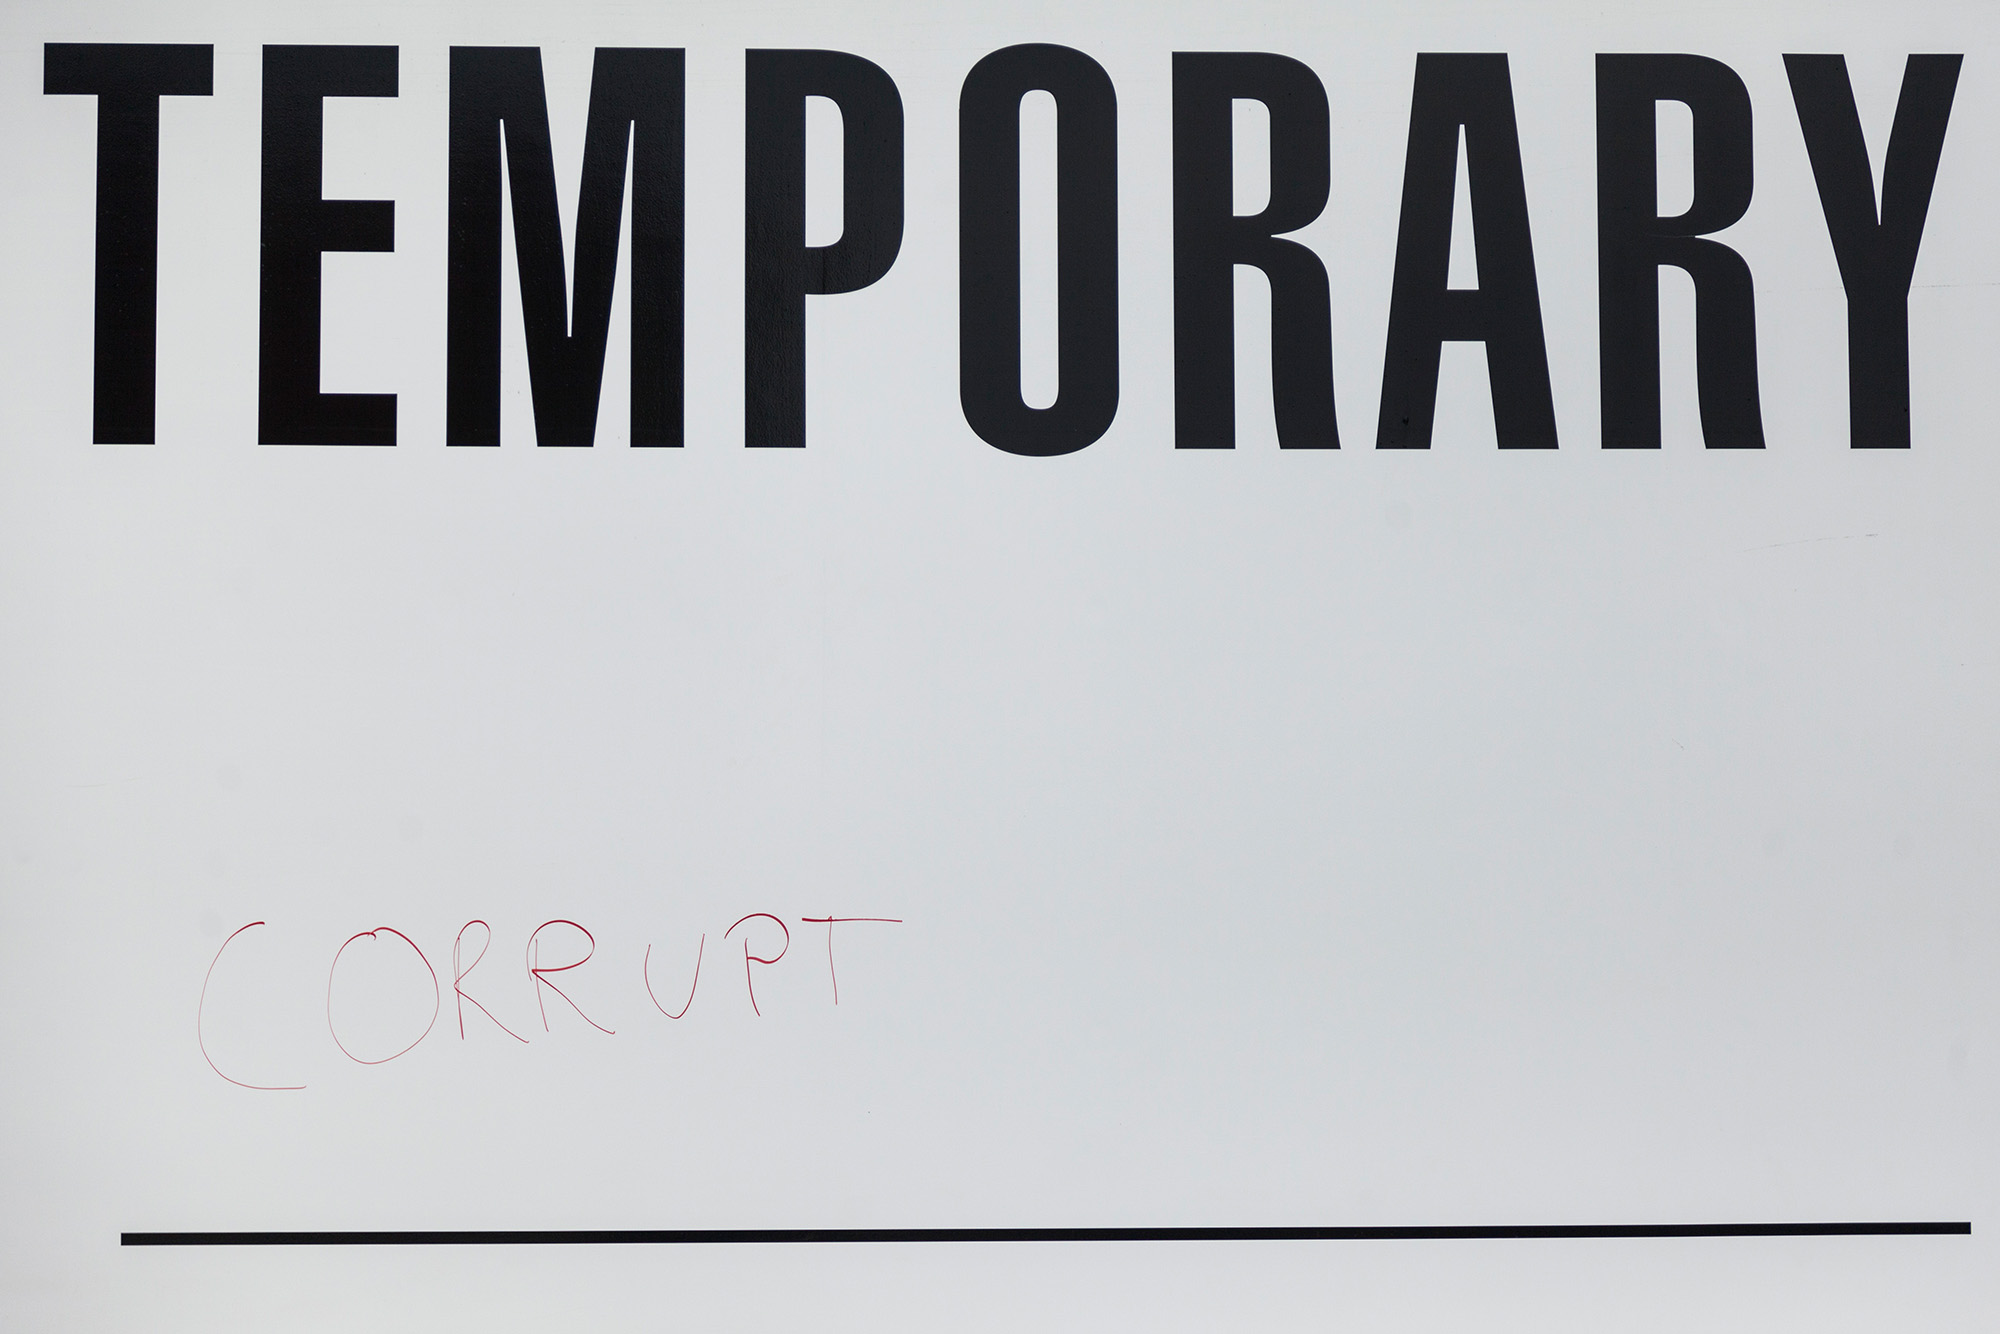 TEMPORARY
CORRUPT